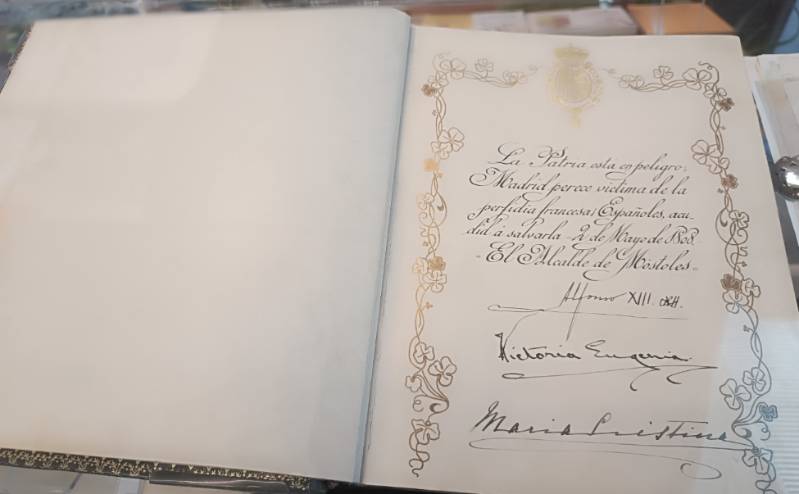 La Patria esta en peligro,
Madrid perece víctima de la
perfidia francesa; Españoles, acu-
did á salvarla - 2 de Mayo de 1808.
- El Alcalde de Móstoles -
Alfonso XIII
Victoria Eugenia
Maria Cristina